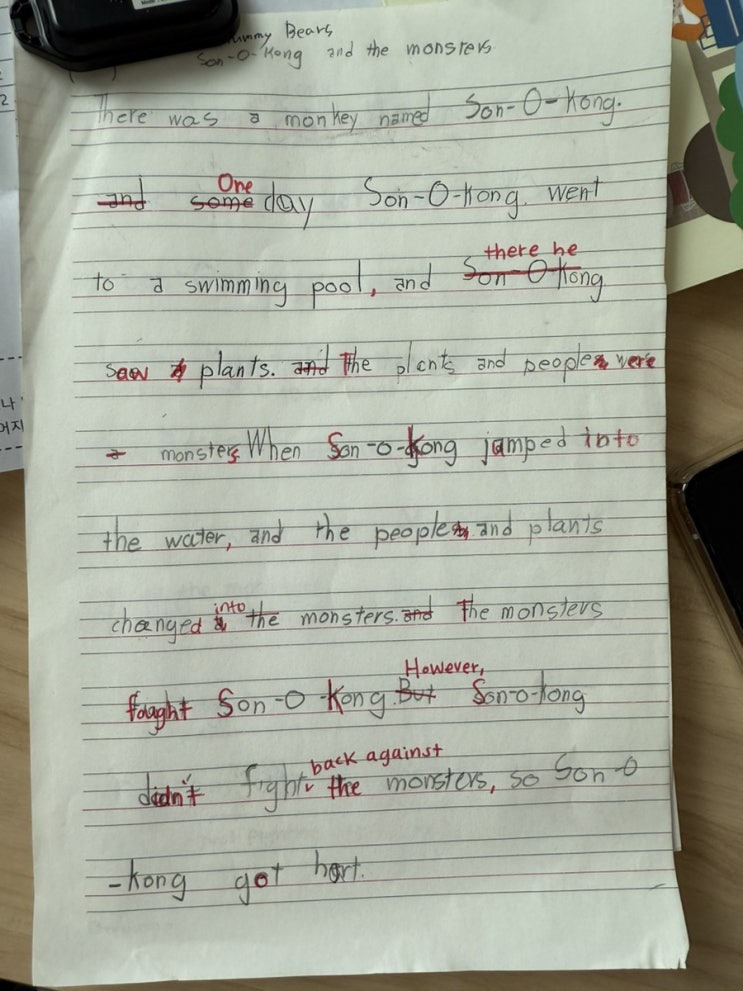 Bears
Son-O-Kong and the monsters
There was a monkey named Son-O-Kong.
and some One day Son-O-Kong. went
to a swimming pool, and Son-O-Kong there he
saw plants. and The plants and people were
a monsters When Son-o-Kong jumped into
the water, and the people and plants
changed into the monsters. and The monsters
fought Son-O-Kong. But However, Son-o-kong
didn't fight back against the monsters, so Son-O
-kong got hurt.
나
어지
2